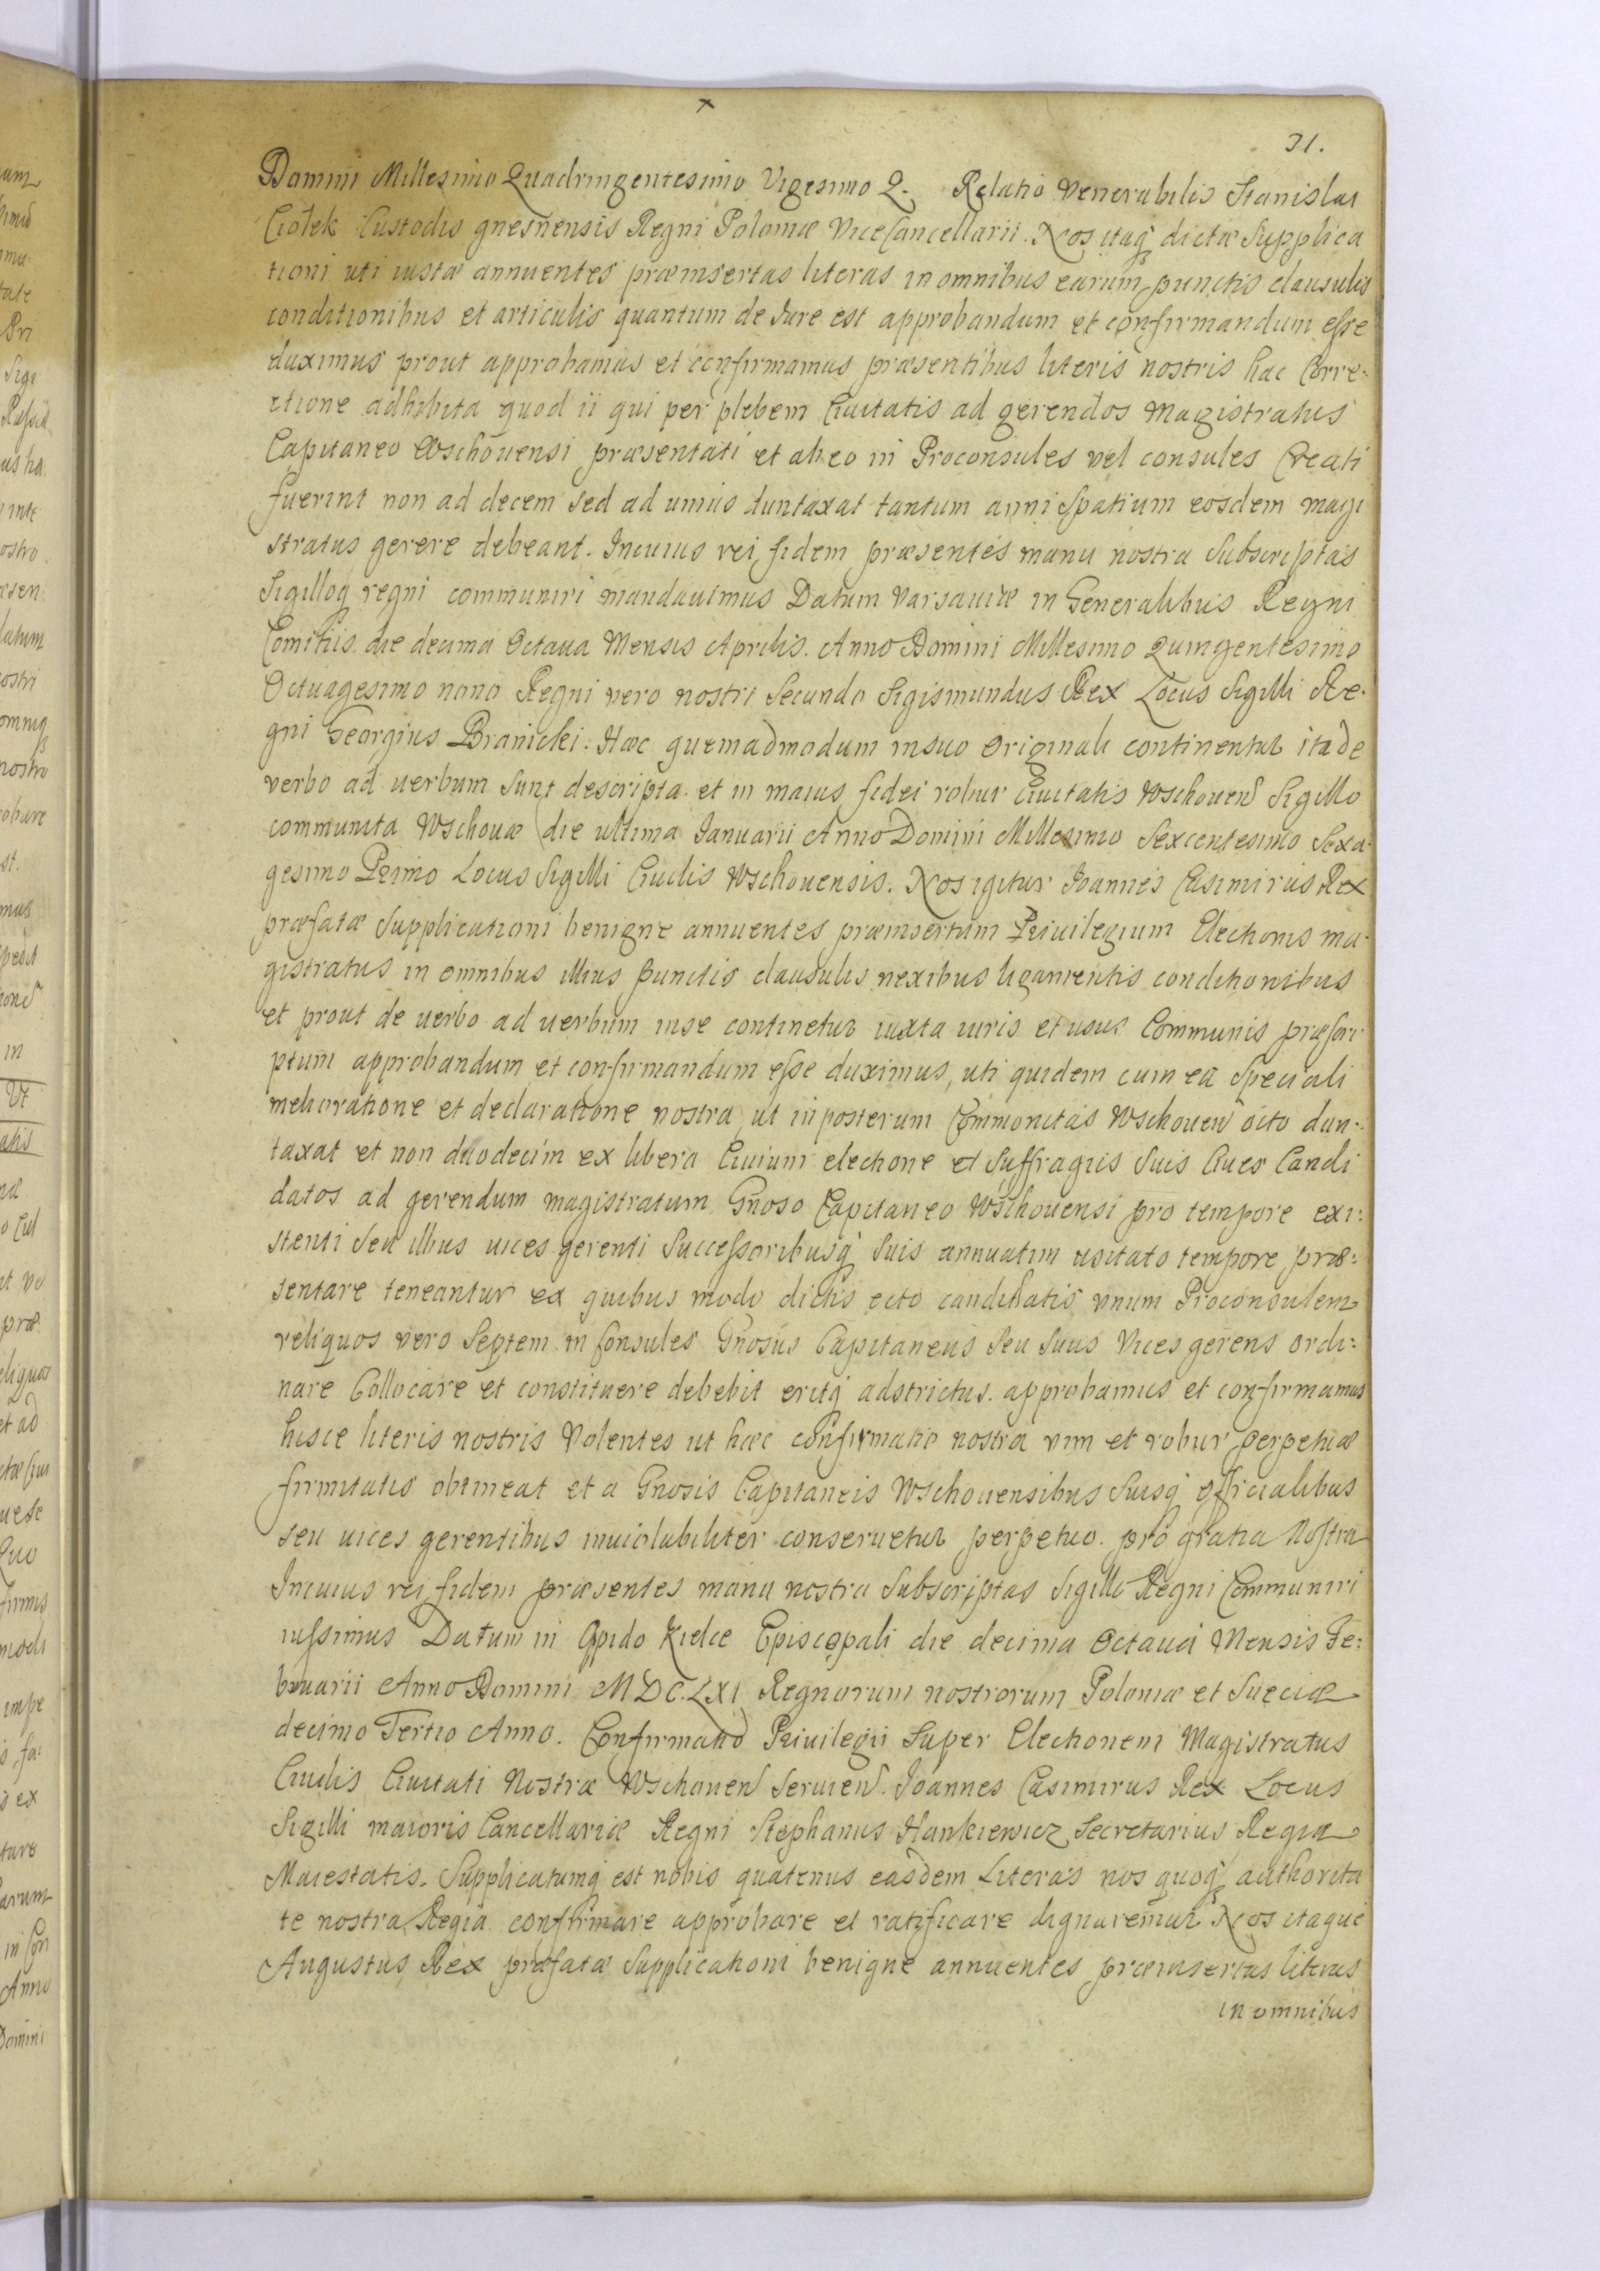 x
31.
Domini Millesimo Quadringentesimo Vigesimo Q. Relatio Venerabilis Stanislai
Ciołek Custodis gnesnensis Regni Poloniæ ViceCancellarii. Nos itaq dictæ Supplica
tioni uti iustæ annuentes præinsertas literas in omnibus earum punctis clausulis
conditionibus et articulis quantum de Iure est approbandum et confirmandum esse
duximus prout approbamus et confirmamus præsentibus literis nostris hac Corre-
ctione adhibita quod ii qui per plebem Ciuitatis ad gerendos Magistratus
Capitaneo Wschouensi præsentati et ab eo in Proconsules vel consules Creati
fuerint non ad decem sed ad unius duntaxat tantum anni spatium eosdem magi
stratus gerere debeant. Incuius rei fidem præsentes manu nostra Subscriptas
Sigilloq regni communiri mandauimus Datum Varsauiæ in Generalibus Regni
Comitiis die decima Octaua Mensis Aprilis. Anno Domini Millesimo Quingentesimo
Octuagesimo nono Regni vero nostri Secundo Sigismundus Rex Locus Sigilli Re-
gni Georgius Branicki. Hæc quemadmodum insuo Originali continentur ita de
verbo ad uerbum sunt descripta et in maius fidei robur Ciuitatis Wschouen Sigillo
communita Wschouæ die ultima Ianuarii Anno Domini Millesimo Sexcentesimo Sexa-
gesimo Primo Locus Sigilli Ciuilis Wschouensis. Nos igitur Ioannes Casimirus Rex
præfatæ Supplicationi benigne annuentes præinsertum Priuilegium Electionis ma-
gistratus in omnibus illius punctis clausulis nexibus ligamentis conditionibus
et prout de uerbo ad uerbum inse continetur iuxta iuris et usus Communis præscri
ptum approbandum et confirmandum esse duximus, uti quidem cum ea Speciali
melioratione et declaratione nostra, ut inposterum Commonitas Wschouen octo dun-
taxat et non duodecim ex libera Ciuium electione et Suffragiis Suis Ciues Candi
datos ad gerendum magistratum Gnoso Capitaneo Wschouensi pro tempore exi:
stenti Seu illius uices gerenti Successoribusq Suis annuatim usitato tempore præ:
sentare teneantur ex quibus modo dictis octo candidatis vnum Proconsulem
reliquos vero Septem in Consules Gnosus Capitaneus Seu Suus Vices gerens ordi:
nare Collocare et constituere debebit eritq adstrictus. approbamus et confirmamus
hisce literis nostris Volentes ut hæc confirmatio nostra vim et robur perpetuæ
firmitatis obtineat et a Gnosis Capitaneis Wschouensibus Suisq officialibus
seu uices gerentibus inuiolabiliter conseruetur perpetuo. pro gratia Nostra
Incuius rei fidem præsentes manu nostra Subscriptas Sigillo Regni Communiri
iussimus Datum in Oppido Kielce Episcopali die decima Octaua Mensis Fe:
bruarii Anno Domini MDC.LXI Regnorum nostrorum Poloniæ et Sueciæ
decimo Tertio Anno. Confirmatio Priuilegii Super Electionem Magistratus
Ciuilis Ciuitati Nostræ Wschouen Seruien. Ioannes Casimirus Rex Locus
Sigilli maioris Cancellariæ Regni Stephanus Hankiewicz Secretarius Regiæ
Maiestatis. Supplicatumq est nobis quatenus easdem Literas nos quoq authorita
te nostra Regia confirmare approbare et ratificare dignaremur Nos itaque
Augustus Rex præfatæ Supplicationi benigne annuentes præinsertas literas
in omnibus